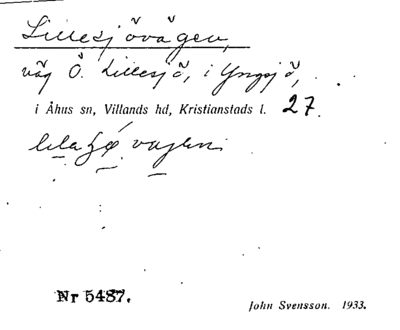 Lillesjövägen,
väg Ö. Lillesjö, i Yngsjö,
i Åhus sn, Villands hd, Kristianstads l. 27.
Nr 5487.
John Svensson. 1933.